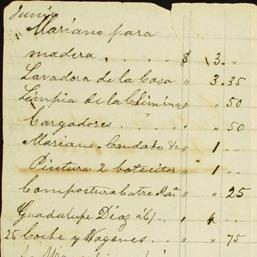 Junio
Mariano para
madera . . . . . $ 3. "
Lavadora de la Casa " 3.35
Limpia de la Chiminea " " 50
Cargadores . . . " " 50
Mariano, Candado de " 1 " "
Pintura 2 botecitos " 1 " "
Compostura Catre " " 25
Guadalupe Diaz " 4 " "
25 Coche y Wagones . . " " 75